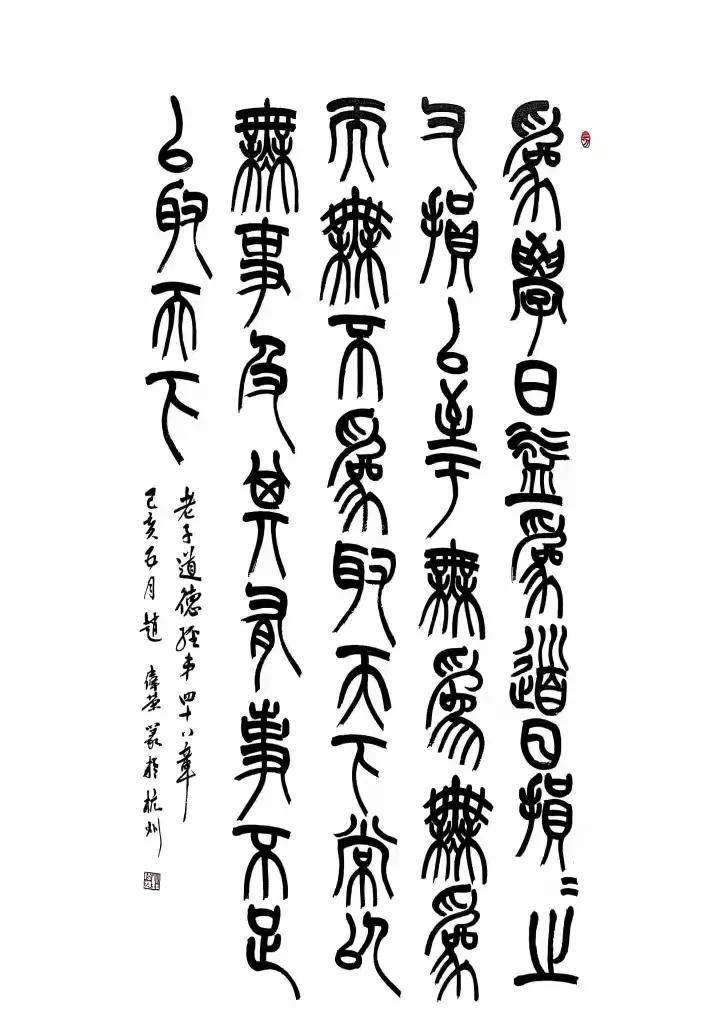 爲學日益爲道日損〻之
又損以至于無爲無爲
而無不爲取天下常以
無事及其有事不足
以取天下
老子道德經第四十八章
己亥五月趙偉榮篆於杭州